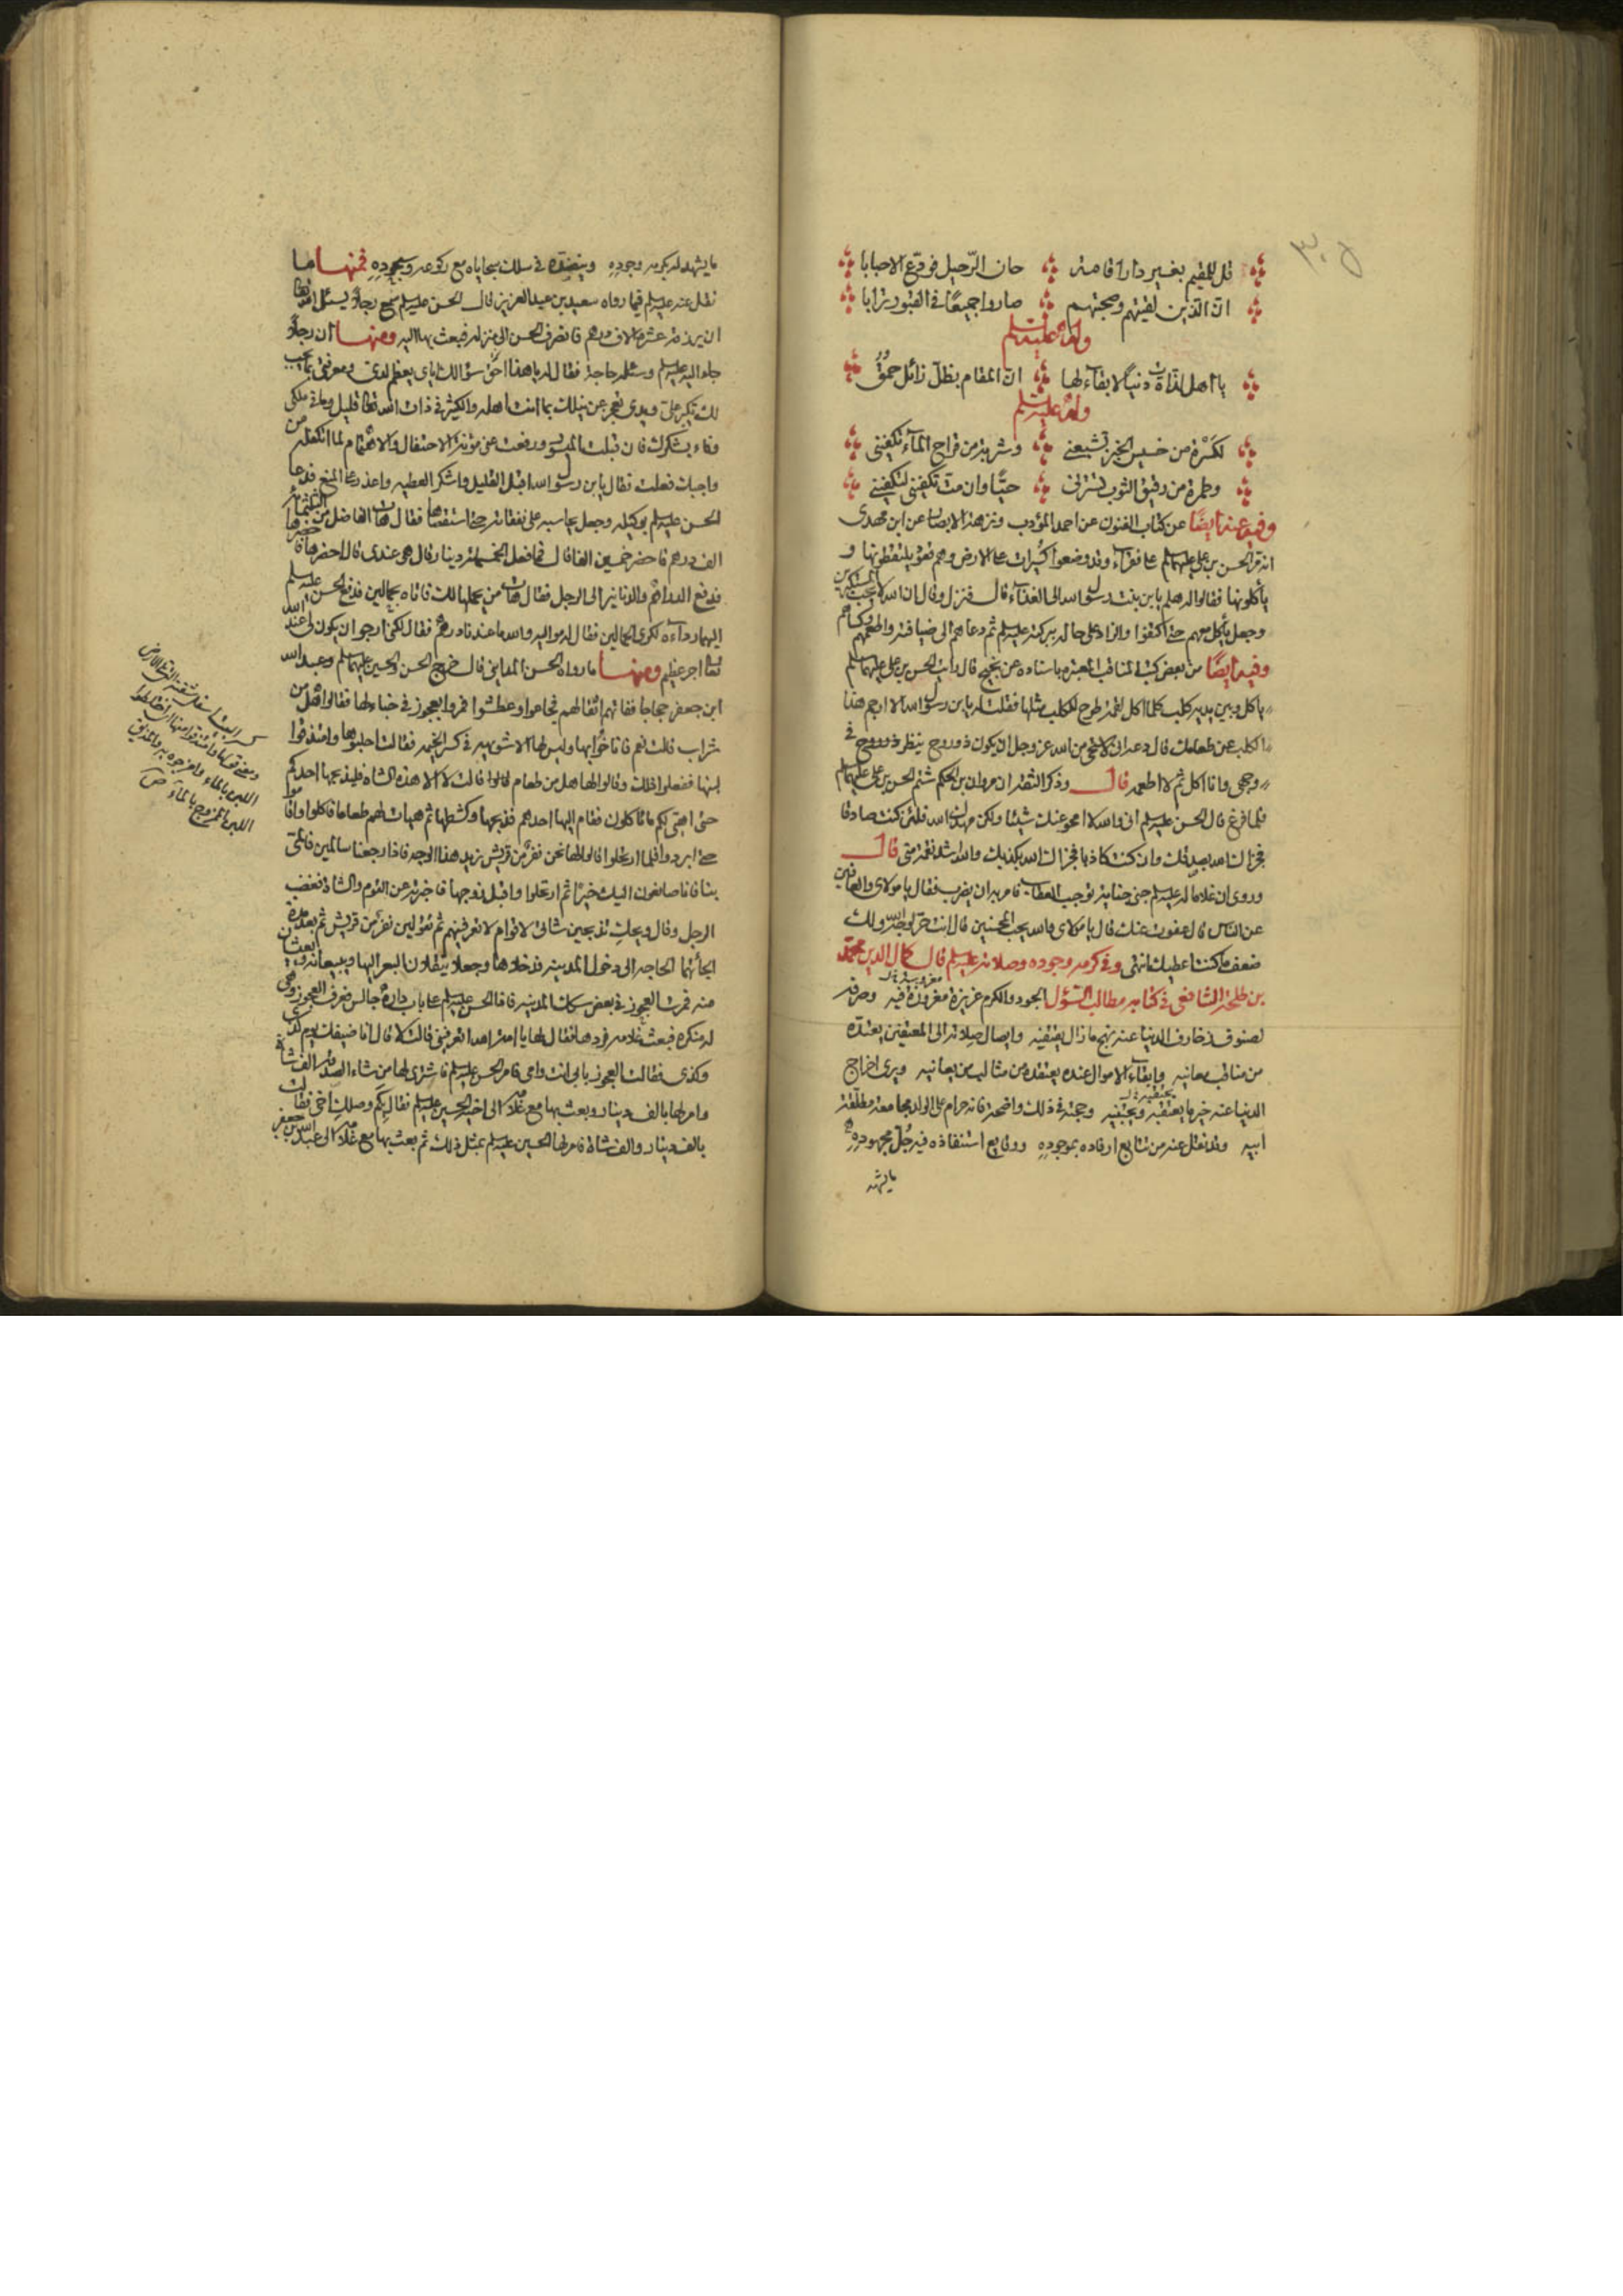 قل للمقيم بغير دار اقامة حان الرّحيل فودّع الاحبابا
انّ الّذين لقيتهم وصحبتهم صاروا جميعًا فى القبور ترابا
وله عليه السلم
يا اهل لذّات دنياً لا بقآء لها انّ المقام بظلّ زائل حمقُ
وله عليه السلم
لكَسْرة من خسيس الخبز تشبعنى وشربة من قراح المآء تكفينى
وطمرة من رقيق الثوب تسترنى حيًّا وان متّ تكفينى لتكفينى
وفيه عنه ايضًا عن كتاب الفنون عن احمد المؤدب ونزهة الابصار عن ابن مهدى
انه مرّ الحسن بن على عليهما السلم على فقرآء وقد وضعوا كسيرات على الارض وهم قعود يلتقطونها و
ياكلونها فقالوا له هلم يابن بنت رسول الله الى الغدآء قال فنزل وقال ان الله لا يحب المستكبرين
وجعل يأكل معهم حتى اكتفوا والزاد على حاله ببركته عليه السلم ثم دعاهم الى ضيافته واطعمهم وكساهم
وفيه ايضًا من بعض كتب المناقب المعتبره باسناده عن نجيح قال رايت الحسن بن على عليهما السلم
ياكل وبين يديه كلب كلما اكل لقمة طرح للكلب مثلها فقلت له يابن رسول الله الا ارجم هذا
الكلب عن طعامك قال دعه انى لاستحيى من الله عز وجل ان يكون ذو روح ينظر فى
وجهى وانا اكل ثم لا اطعمه قال وذكر الثقة ان مروان بن الحكم شتم الحسن بن على عليهما السلم
فلما فرغ قال الحسن عليه السلم انى والله لا امحو عنك شيئا ولكن مهدك الله فلئن كنت صادقا
فجزاك الله بصدقك وان كنت كاذبا فجزاك الله بكذبك والله اشد نقمة منى قال
وروى ان غلاما له عليه السلم جنى جناية توجب العقاب فامر به ان يضرب فقال يا مولاى والعافين
عن النّاس قال عفوت عنك قال يا مولاى والله يحب المحسنين قال انت حرّ لوجه الله ولك
ضعف ما كنت اعطيك انتهى وفى كرمه وجوده وصلاته عليه السلم قال كمال الدين محمّد
بن طلحة الشافعى فى كتابه مطالب السّؤل الجود والكرم غريزة مغروزة فيه وصرفه
لصنوف زخارف الدنيا عنه نهج ما زال يقتفيه وايصال صلاته الى المعتفين يعتدّه
من مناقب معانيه وابقآء الاموال عنده يعتقده من مثالب من يعانيه ويرى اخراج
الدنيا عنه خير ما يحتقبه ويجتنيه وحجته فى ذلك واضحة فانه حرام على الولد مجامعة مطلّقة
ابيه وقد نقل عنه من تتابع ارفاده بموجودهِ ووقايع استنفاذه فيه جُلّ مجهودهِ
ما يشهد
ما يشهد له بكرمه وجودهِ وينضده فى سلك سجاياه مع ركوعه وسجودهِ فمنها ما
نقل عنه عليه السلم فيما رواه سعيد بن عبد العزيز قال الحسن عليه السلم سمع رجلاً يسئل الله تعالى
ان يرزقه عشرة الاف درهم فانصرف الحسن الى منزله فبعث بها اليه ومنها ان رجلاً
جاء اليه عليه السلم وسئله حاجة فقال له يا هذا حق سؤالك اياى يعظم لدى ومعرفتى بما يجب
لك تكبر علىّ ويدى تعجز عن نيلك بما انت اهله والكثير فى ذات الله تعالى قليل وما فى ملكى
وفاء بشكرك فان قبلت الميسور ورفعت عنى مؤنة الاحتفال والاهتمام لما اتكلفه من
واجبك فعلت فقال يابن رسول الله اقبل القليل واشكر العطيه واعذر على المنع فدعا
الحسن عليه السلم بوكيله وجعل يحاسبه على نفقاته حتى استقصاها فقال هات الفاضل من الثلثمائه
الف درهم فاحضر خمسين الفا قال فما فعل الخمسمائة دينار قال هى عندى قال احضرها فاحضرها
فدفع الدراهم والدنانير الى الرجل فقال هات من يحملها لك فاتاه بحمالين فدفع الحسن عليه السلم
اليهما ردآءه لكرى الحمالين فقال له مواليه والله ما عندنا درهم فقال لكنى ارجو ان يكون لى عند الله
تعالى اجر عظيم ومنها ما رواه الحسن المداينى قال خرج الحسن والحسين عليهما السلم وعبد الله
ابن جعفر حجاجا ففاتهم اثقالهم فجاعوا وعطشوا فمروا بعجوز فى خباء لها فقالوا هل من
شراب قالت نعم فاناخوا بها وليس لها الا شويهة فى كسر الخيمه فقالت احلبوها وامتذقوا
لبنها ففعلوا ذلك وقالوا لها هل من طعام قالوا قالت لا الا هذه الشاه فليذبحها احدكم
حتى اهيّئ لكم ما تاكلون فقام اليها احدهم فذبحها وكشطها ثم هيات لهم طعاما فاكلوا واقاموا
حتى ابردوا فلما ارتحلوا قالوا لها نحن نفرٌ من قريش نريد هذا الوجه فاذا رجعنا سالمين فالمّى
بنا فانا صانعون اليك خيرًا ثم ارتحلوا واقبل زوجها فاخبرته عن القوم والشاة فغضب
الرجل وقال ويحكِ تذبحين شاتى لاقوام لا تعرفينهم ثم تقولين نفرٌ من قريش ثم بعد مدّة
الجأتهما الحاجه الى دخول المدينه فدخلاها وجعلا ينقلان البعر اليها ويبيعانه ويعيشان
منه فمرت العجوز فى بعض سكك المدينه فاذا الحسن عليه السلم على باب داره جالس فعرف العجوز وهى
له منكره فبعث غلامه فردها فقال لها يا امة الله اتعرفينى قالت لا قال انا ضيفك يوم كذا
وكذى فقالت العجوز بابى انت وامى فامر الحسن عليه السلم فاشترى لها من شاء الصدقه الف شاة
وامر لها بالف دينار وبعث بها مع غلامه الى اخيه الحسين عليه السلم فقال بكم وصلكِ اخى فقالت
بالف دينار والف شاة فامر لها الحسين عليه السلم بمثل ذلك ثم بعث بها مع غلامه الى عبد الله بن جعفر
اللبن بالماء
اللبن الممزوج بالمآء